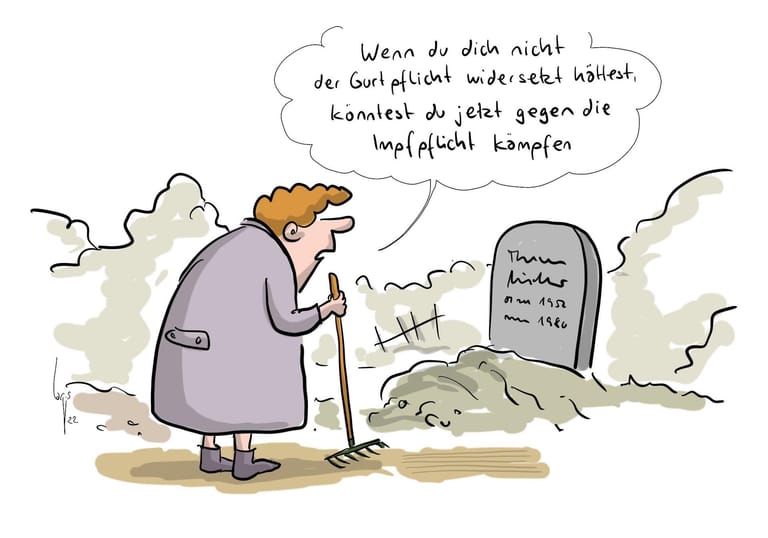 Wenn du dich nicht
der Gurtpflicht widersetzt hättest,
könntest du jetzt gegen die
Impfpflicht kämpfen
1952
1980
22